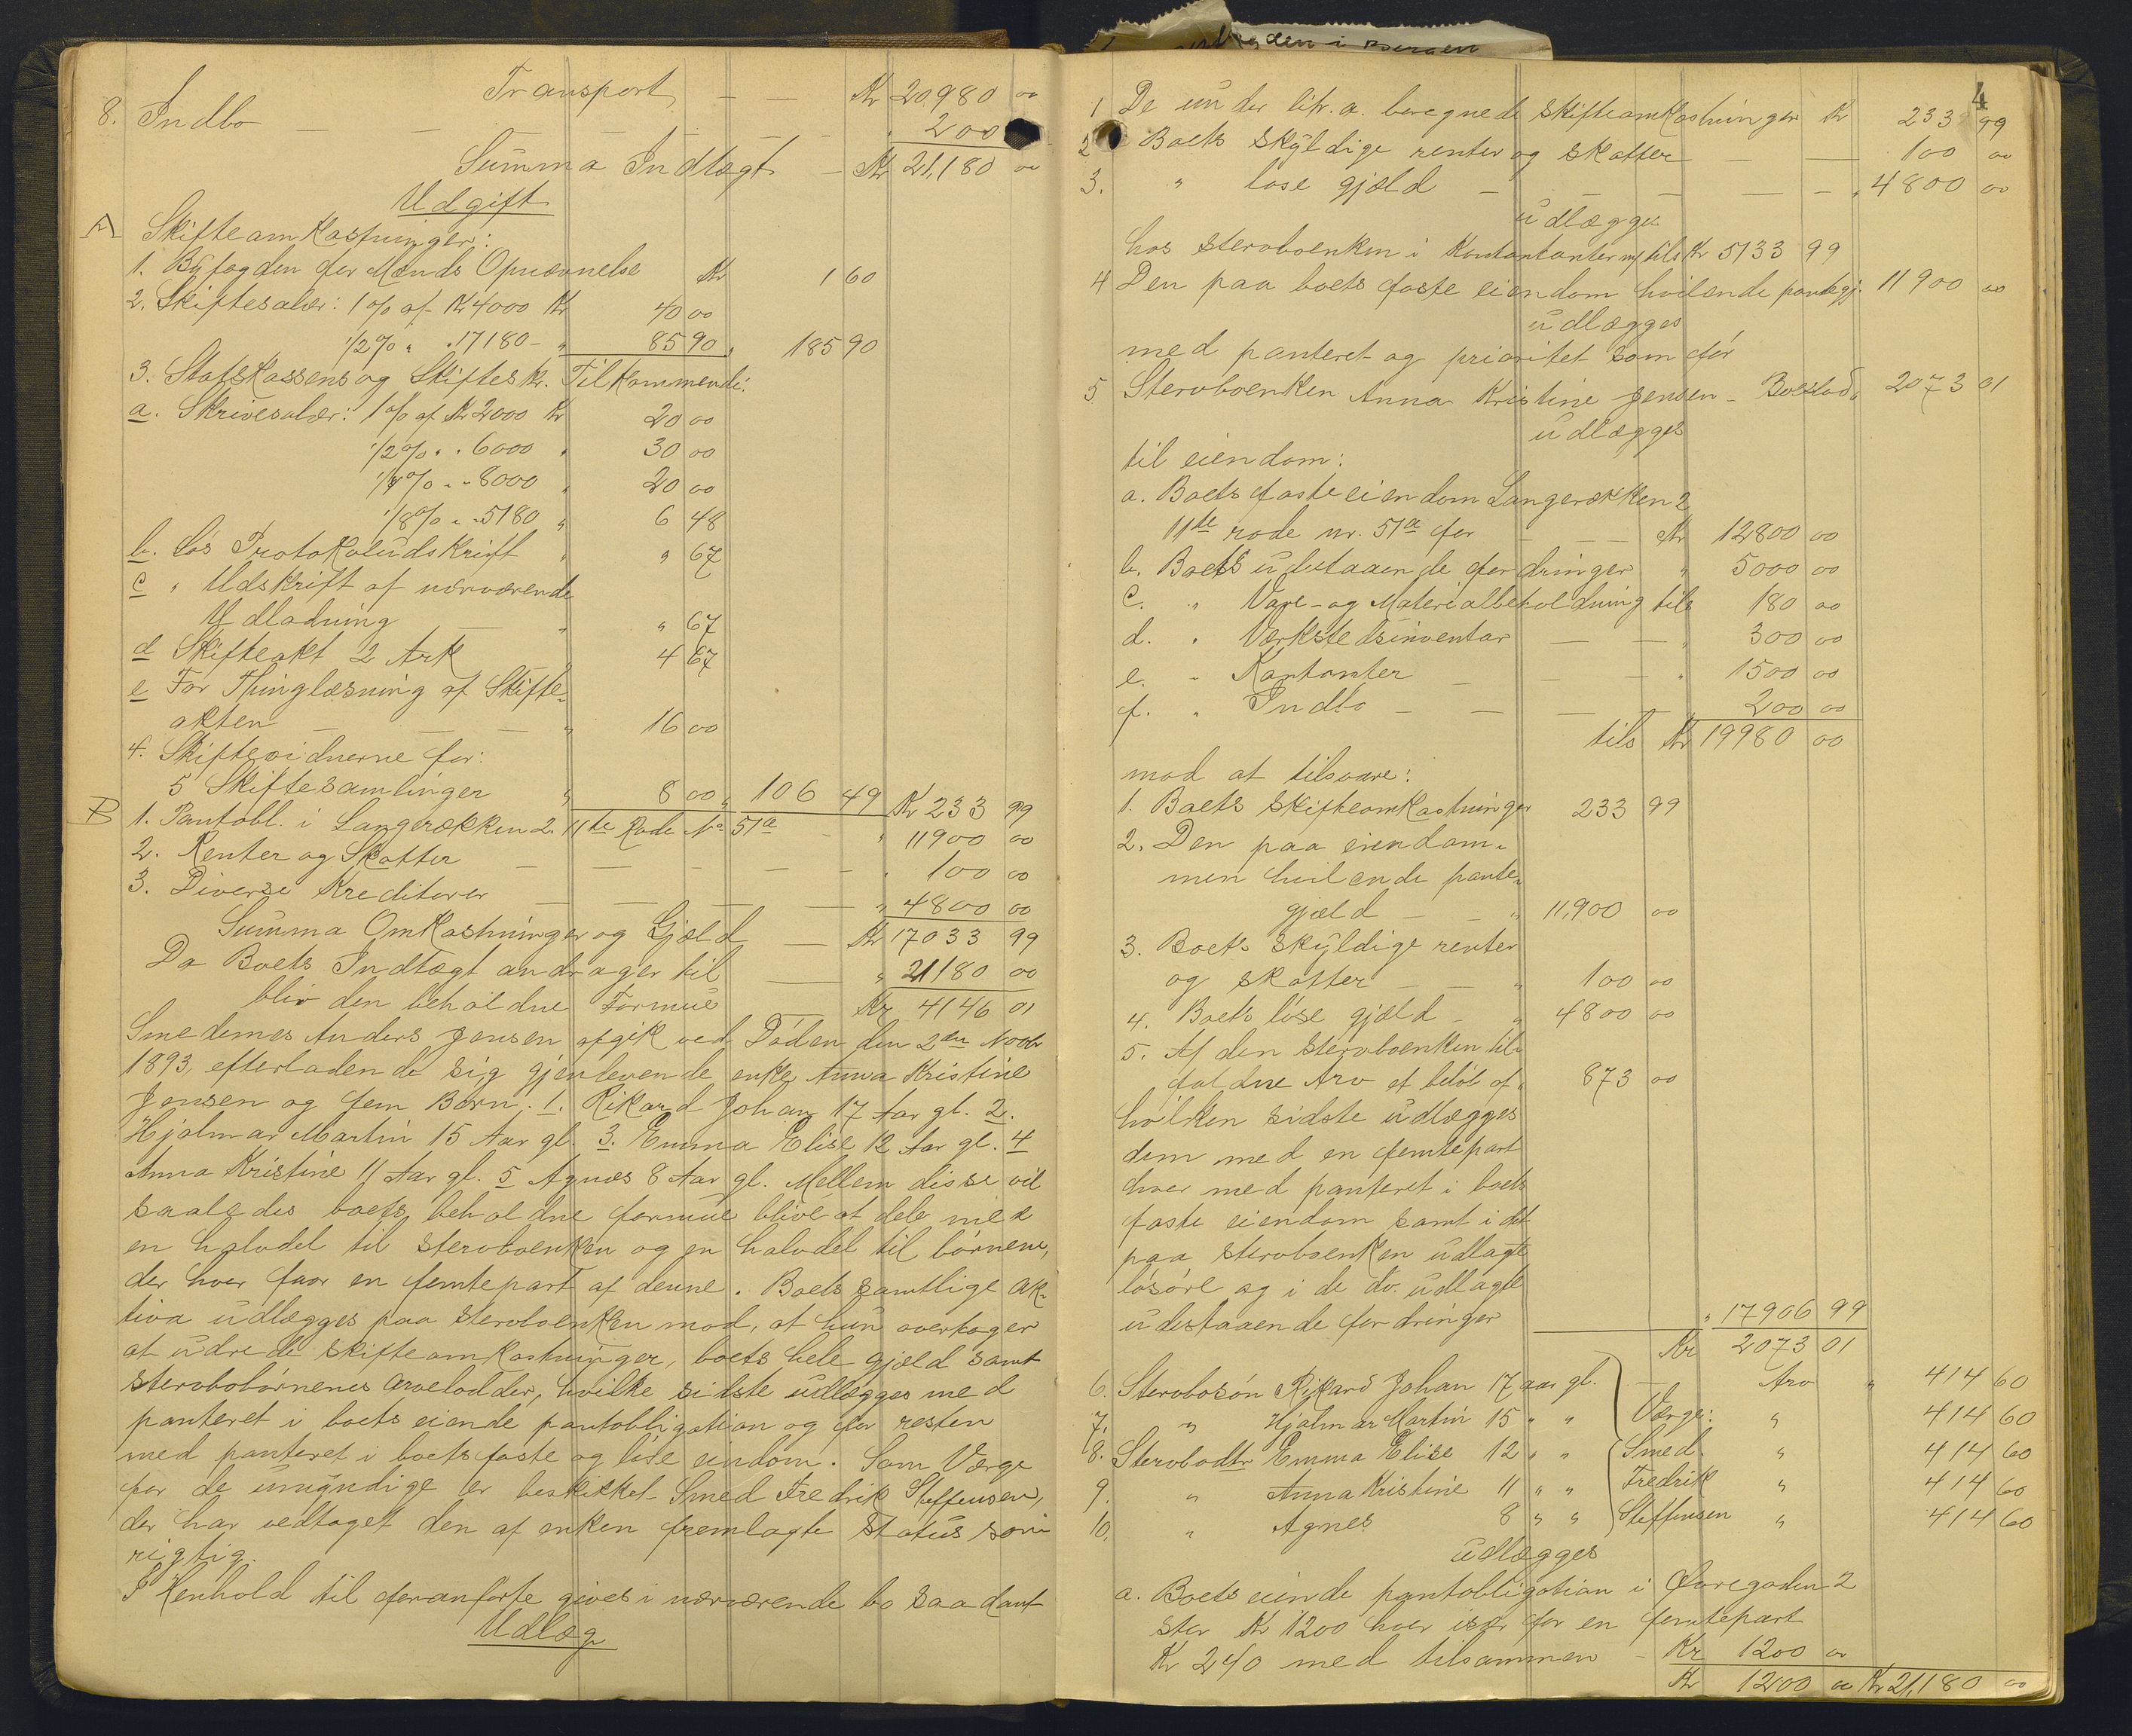 Transport — — Kr 20980 00
8. Indbo — — — — — " 200
Summa Indtægt — Kr 21,180 00
Udgift
A Skifteomkostninger:
1. Byfogden for Mænds Opnævnelse Kr 1 60
2. Skiftesalær: 1% af Kr 4000 Kr 40 00
1/2% " " 17180 - " 85 90 " 185 90
3. Statskassens og Skiftesk. Tilkommende:
a. Skrivesalær: 1% af Kr 2000 Kr 20 00
1/2% " " 6000 " 30 00
1/4% " " 8000 " 20 00
1/8% " " 5180 " 6 48
b. løs Protokoludskrift " " 67
c " Udskrift af nærværende
Udlodning — " " 67
d Skifteakt 2 Ark " 4 67
e For Thinglæsning af Skifte-
akten — — — " 16 00
4. Skiftevidnerne for:
5 Skiftesamlinger " 8 00 " 106 49 Kr 233 99
B 1. Pantobl. i Langerækken 2. 11te Rode No 51a — " 11900 00
2. Renter og Skatter — — — — " 100 00
3. Diverse Kreditorer — — — — " 4800 00
Summa Omkostninger og Gjæld — Kr 17033 99
Da Boets Indtægt andrager til — " 21180 00
bliv den beholdne Formue Kr 4146 01
Smedemes Anders Jensen afgik ved Døden den 2den Novbr
1893, efterladende sig gjenlevende enke Anna Kristine
Jensen og fem Børn: 1. Rikard Johan 17 Aar gl. 2.
Hjalmar Martin 15 Aar gl. 3. Emma Elise 12 Aar gl. 4
Anna Kristine 11 Aar gl. 5 Agnes 8 Aar gl. Mellem disse vil
saaledes boets beholdne formue blive at dele med
en halvdel til stervboenken og en halvdel til børnene,
der hver faar en femtepart af denne. Boets samtlige ak-
tiva udlægges paa stervboenken mod, at hun overtager
at udrede skifteomkostninger, boets hele gjæld samt
stervbobørnenes arvelodder, hvilke sidste udlægges med
panteret i boets eiende pantobligation og for resten
med panteret i boets faste og løse eiendom. Som Værge
for de umyndige er beskikket Smed Fredrik Steffensen,
der har vedtaget den af enken fremlagte Status som
rigtig.
I Henhold til foranførte gives i nærværende bo saadant
Udlæg
4
1 De under litr. a. beregnede skifteomkostninger Kr 233 99
2 Boets skyldige renter og skatter — — 100 00
3. " løse gjæld — — — — " 4800 00
udlægges
hos stervboenken i Kontantanter m/ tils Kr 5133 99
4 Den paa boets faste eiendom hvilende pantegj. 11900 00
udlægges
med panteret og prioritet som før
5 Stervboenken Anna Kristine Jensen - Boeslod " 2073 01
udlægges
til eiendom:
a. Boets faste eiendom Langerækken 2
11te rode nr. 51a for — — Kr 12800 00
b. Boets udestaaende fordringer " 5000 00
c. " Vare- og Materialbeholdning tils 180 00
d. " Værkstedsinventar — — " 300 00
e. " Kontanter — — — " 1500 00
f. " Indbo — — — 200 00
tils Kr 19980 00
mod at tilsvare:
1. Boets skifteomkostninger 233 99
2. Den paa eiendom-
men hvilende pante-
gjæld — — " 11,900 00
3. Boets skyldige renter
og skatter — — " 100 00
4. Boets løse gjæld — " 4800 00
5. Af den stervboenken til-
faldne Arv et beløb af " 873 00
hvilken sidste udlægges
dem med en femtepart
hver med panteret i boets
faste eiendom samt i det
paa stervboenken udlagte
løsøre og i de do. udlagte
udestaaende fordringer " 17906 99
Kr 2073 01
6. Stervbosøn Rikard Johan 17 aar gl. — Arv " 414 60
7. " Hjalmar Martin 15 " " Værge: " 414 60
8. Stervbodtr Emma Elise 12 " " Smed " 414 60
9. " Anna Kristine 11 " " Fredrik " 414 60
10. " Agnes 8 " " Steffensen " 414 60
udlægges
a. Boets eiende pantobligation i Øvregaden 2
stor Kr 1200 hver især for en femtepart
Kr 240 med tilsammen — Kr 1200 00
Kr 1200 00 Kr 21,180 00